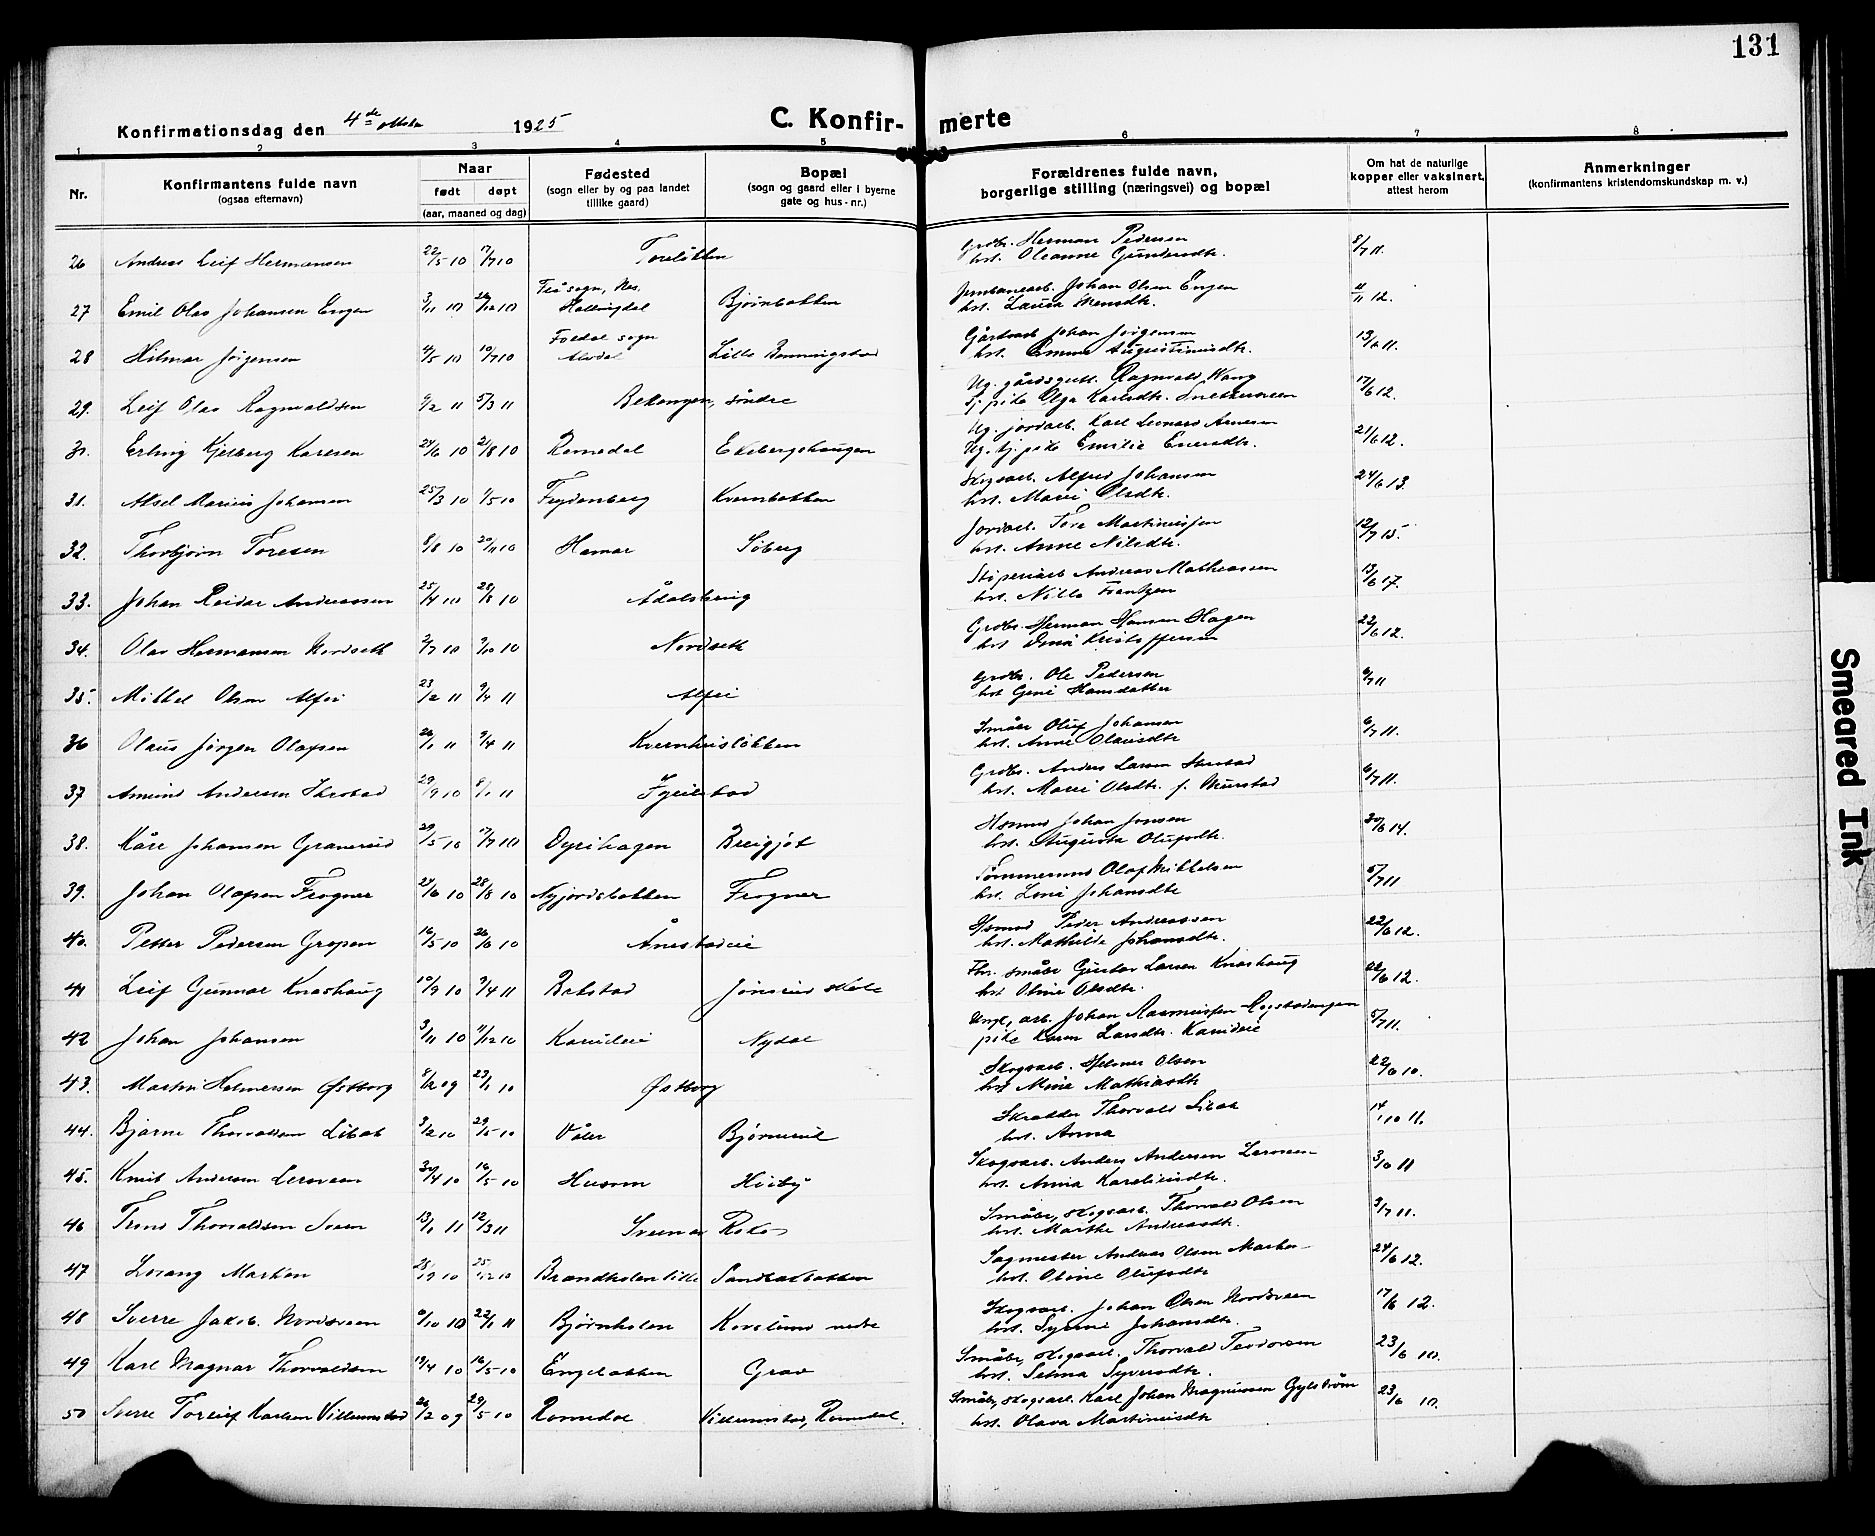 131
Konfirmationsdag den 4de oktober 1925
C. Konfir- merte
1 2 3 4 5 6 7 8
Nr.
Konfirmantens fulde navn
(ogsaa efternavn)
Naar
født døpt
(aar, maaned og dag)
Fødested
(sogn eller by og paa landet
tillike gaard)
Bopæl
(sogn og gaard eller i byerne
gate og hus-nr.)
Forældrenes fulde navn,
borgerlige stilling (næringsvei) og bopæl
Om hat de naturlige
kopper eller vaksinert,
attest herom
Anmerkninger
(konfirmantens kristendomskundskap m. v.)
Grdbr. Herman Pedersen
26 Andreas Leif Hermansen 22/5 10 17/7 10 Toreløkken hst. Oleanne Gundersdtr. 8/7 11.
27 Emil Olav Johansen Engen 3/11 10 Hallingdal Bjørnbakken Jernbanearb. Johan Olsen Engen
hst. Laura 11/11 12.
28 Hilmar Jørgensen 4/5 10 10/7 10 Foldal sogn Alvdal Lille Gårdsarb. Johan Jørgensen
hst. Emma Augustinusdtr. 11.
29. Leif Olav Ragnvaldsen 5/3 11 Bekengen, søndre Ug. gårdsgutt. Ragnvald Wang
tj. pike Olga Karlsdtr. 17/6 12.
Erling Kjelberg Karlsen 24/6 10 21/8 10 Romedal Ekebergshaugen Ug. jordarb. Karl Leonard Arnesen
Ug. tj. pike Emilie Evensdtr. 21/6 12.
31. Aksel Marius Johansen 25/3 10 1/5 10 Frydenberg Kvernbakken Skogsarb. Alfred Johansen
hst. Marie Olsdtr. 24/6 13.
32. Thorbjørn Toresen 8/8 10 20/11 10 Hamar Søberg Jordarb. Tore Martinussen
hst. Anne Nilsdtr. 12/7 15.
33. Johan Reidar Andreassen 25/4 10 28/8 10 Ådalsbruig Støperiarb Andreas Mathiassen
hst. Nilla Frantzen 13/6 17.
34. Olav Hermansen Nordseth 2/7 10 9/10 10 Nordseth Grdbr. Herman Hansen Hagen
hst. Kristoffersen 22/6 12.
35. Mikkel Olsen Alfei 23/2 11 9/4 11 Alfei Grdbr. Ole Pedersen
hst Gine Hansdatter 6/7 11
36 Olaus Jørgen Olafsen 26/1 11 9/4 11 Småbr Oluf Johansen
hst. Anne Olausdtr 6/7 11.
37 Amund Andersen 29/9 10 8/1 11 Grdbr. Anders Larsen
hst. Marie Olsdtr. f. 6/7 11.
38. Kåre Johansen Granerud 29/5 10 17/7 10 Dyrihagen Breigjot Hsmnd Johan Jonsen
hst. Augusta Olufsdtr. 30/6 14.
39. Johan Olafsen Frogner 24/6 10 28/8 10 Nyjordsbakken Frogner Tømmermnd Olaf Mikkelsen
hst. Line Johansdtr 5/7 11
40. Petter Pedersen Gropen 16/5 10 26/6 10 Ånestadeie Hsmnd Peder Andreassen
hst. Mathilde Johansdtr. 22/6 12.
41 Leif Gunnar Knashaug 10/9 10 9/4 11 Bakstad Jønsrud skole Fhv. småbr Gustav Larsen Knashaug
hst Oline Olsdtr. 22/6 12.
42 Johan Johansen 3/11 10 11/12 10 Karudeie Nydal Ungk, arb. Johan Rasmussen Rogstadengen
pike Karen Larsdtr. Karudeie 5/7 11.
43. Martin Helmersen Østborg 8/12 09 23/1 10 Østborg Skogsarb. Hjelmer Olsen
hst Mina Mathiasdtr 22/6 10.
44. Bjarne Thorvaldsen Libak 3/2 10 29/5 10 Våler Bjørnerud Skrædder Thorvald Libak
hst. Anna 14/10 11.
45. Knut Andersen Lersveen 30/4 10 16/5 10 Husom Hoiby Skogsarb. Anders Andersen Lersveen
hst. Anna Karelinisdtr. 11
46 Thorvaldsen Sveen 13/1 11 12/3 11 Sveenar Roko Småbr, skogsarb. Thorvald Olsen
hst. Marthe Andreasdtr. 3/7 11.
47 Lorang Marken Brandholen lille Sandbakbakken Sagmester Andreas Olsen Marken
hst. Oline Olufsdtr 24/6 12.
48 Sverre Jakob. Nordsveen 22/1 11 Bjørnholen Korslund nedre Skogsarb. Johan Olsen Nordsveen
hst. Syrine Johansdtr. 17/6 12.
49 Karl Magnar Thorvaldsen 19/4 10 16/5 10 Engebakken Grav Småbr, skogsarb. Thorvald Teodorsen
hst. Selma Syversdtr. 23/6 10.
50 Sverre Torleif Karlsen Villumstad 26/12 09 29/5 10 Romedal Villumstad, Romedal. Småbr, skogsarb. Karl Johan Magnussen Gylstrøm
hst. Olava Martinusdtr 23/6 10.
Smeared Ink